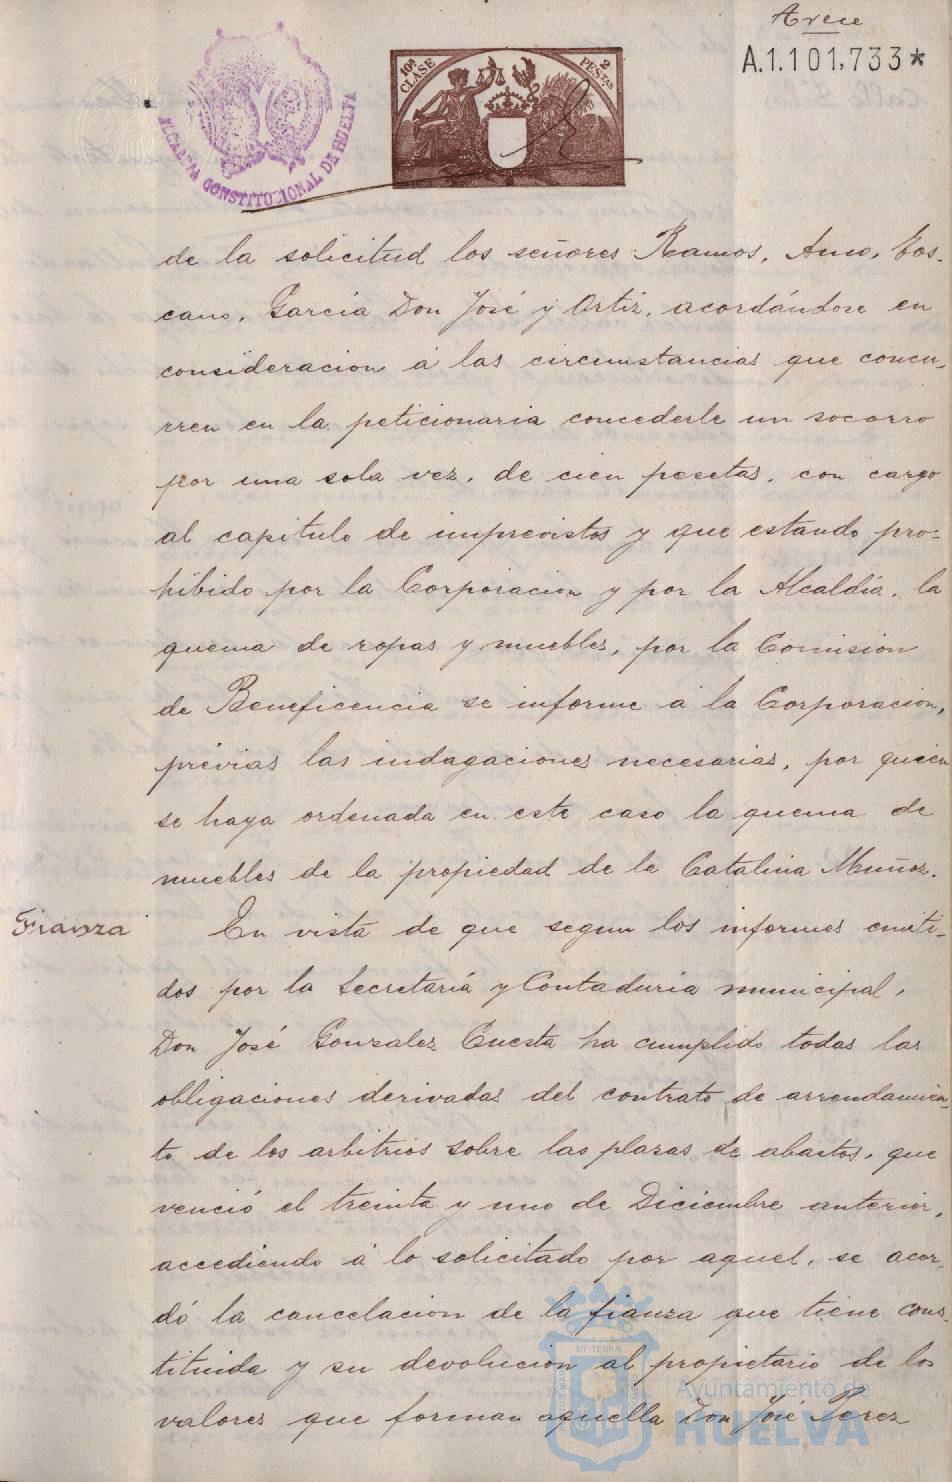 Trece
A.1.101,733*
10ª CLASE
2 PESTAS
ALCALDIA CONSTITUCIONAL DE HUELVA
de la solicitud los señores Ramos, Amo, Tos-
cano, Garcia Don José y Ortiz, acordándose en
consideracion á las circunstancias que concu-
rren en la peticionaria concederle un socorro
por una sola vez, de cien pesetas, con cargo
al capitulo de imprevistos y que estando pro-
hibido por la Corporacion y por la Alcaldía, la
quema de ropas y muebles, por la Comision
de Beneficencia se informe á la Corporacion,
prévias las indagaciones necesarias, por quien
se haya ordenada en este caso la quema de
muebles de la propiedad de la Catalina Muñoz.
Fianza
En vista de que segun los informes emiti-
dos por la Secretaría y Contaduría municipal,
Don José Gonzalez Cuesta ha cumplido todas las
obligaciones derivadas del contrato de arrendamien-
to de los arbitrios sobre las plazas de abastos, que
venció el treinta y uno de Diciembre anterior,
accediendo á lo solicitado por aquel, se acor-
dó la cancelacion de la fianza que tiene cons-
tituida y su devolucion al propietario de los
valores que forman aquella Don José Perez
ET TERRÆ
Ayuntamiento de
HUELVA